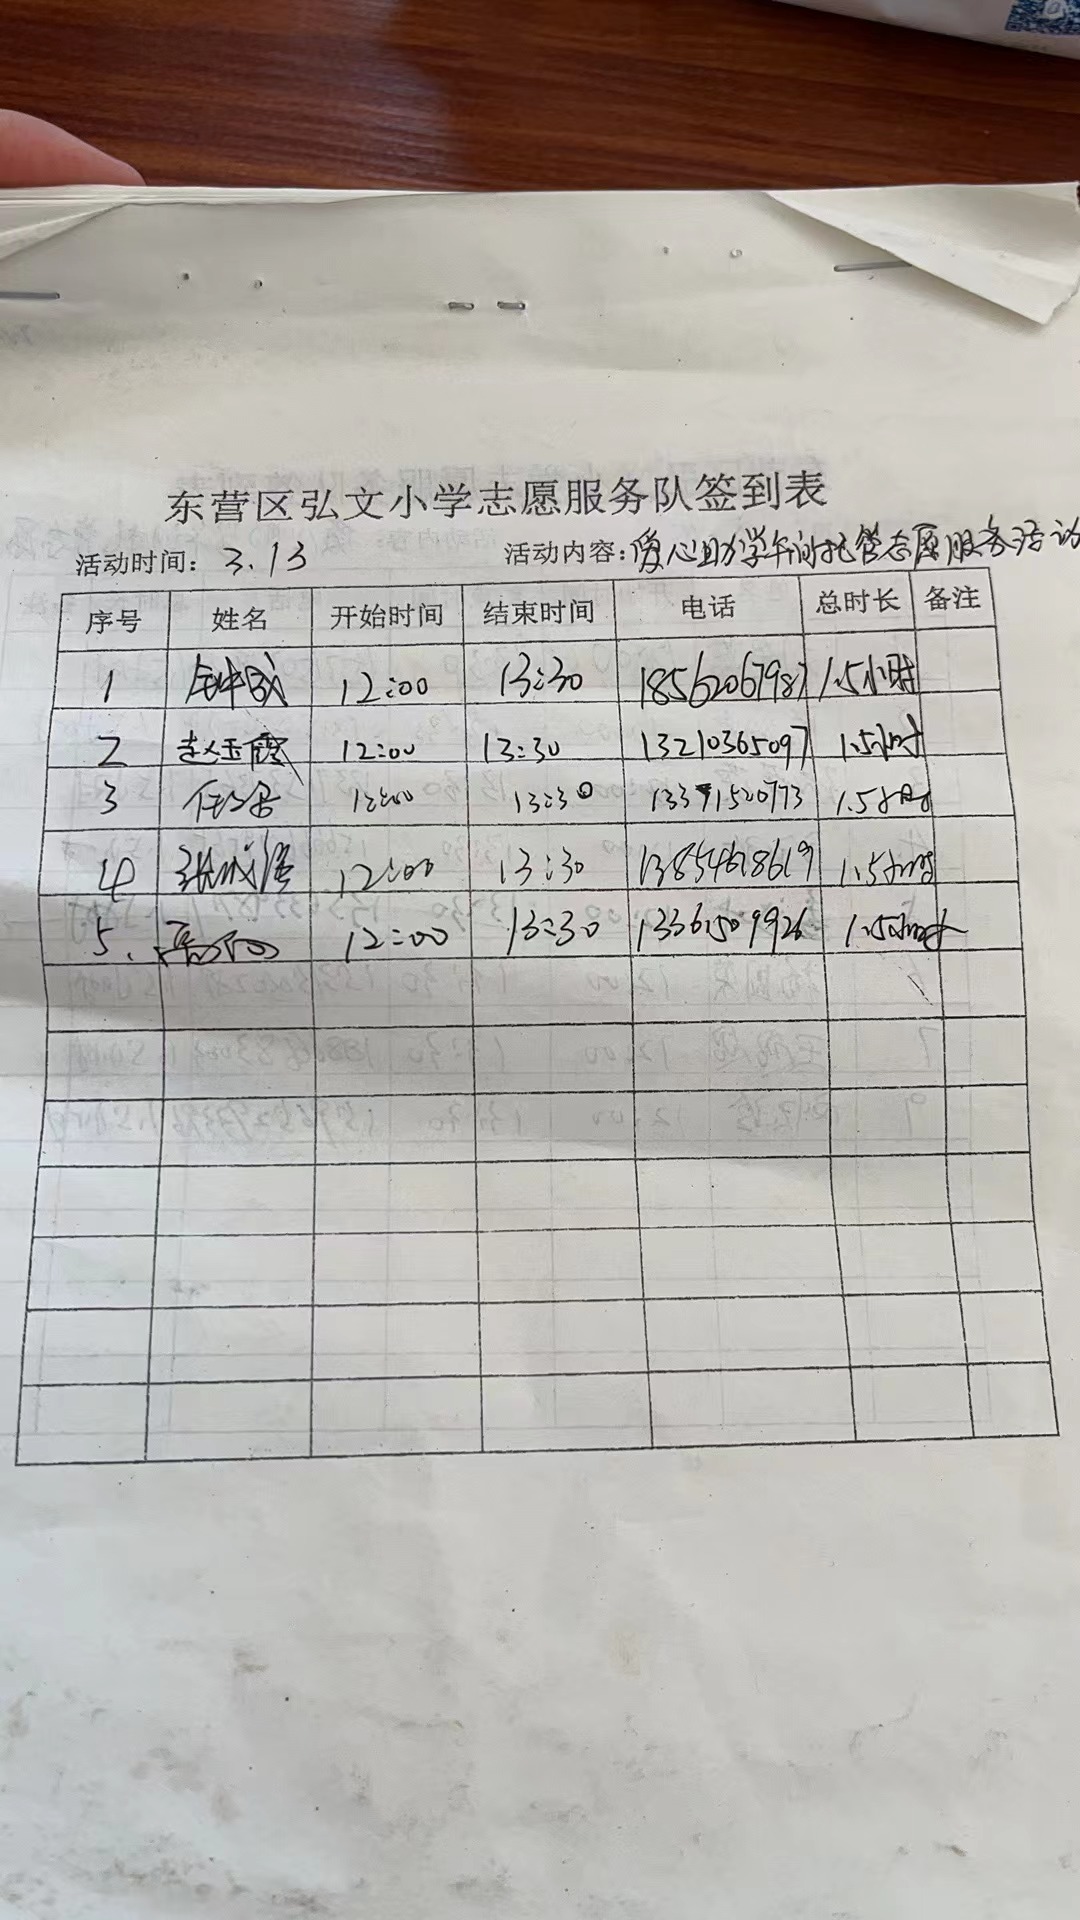 东营区弘文小学志愿服务队签到表
活动时间：3.13 活动内容：爱心助学午间托管志愿服务活动
序号 姓名 开始时间 结束时间 电话 总时长 备注
1 12:00 13:30 18562067987 1.5小时
2 赵玉霞 12:00 13:30 13210365097 1.5小时
3 12:00 13:30 13371520773 1.5小时
4 12:00 13:30 13854678619 1.5小时
5. 12:00 13:30 13361509926 1.5小时